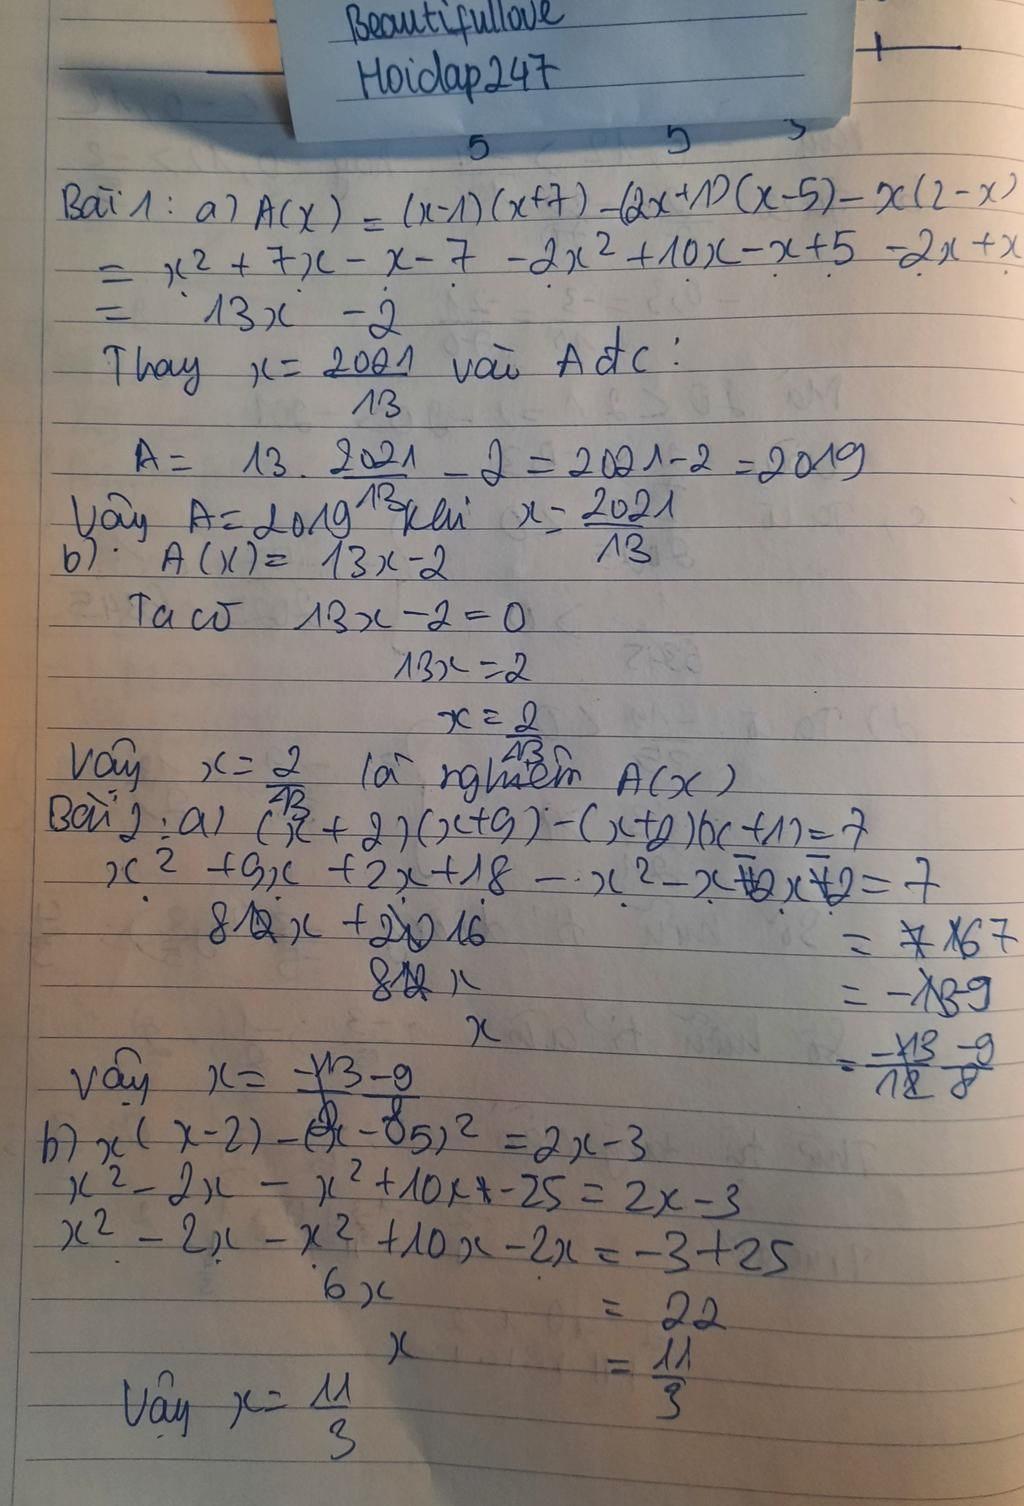 Beautifullove
Hoidap247
5 5 3
Bài 1: a) A(x) = (x-1)(x+7) - (2x+1)(x-5) - x(2-x)
= x² + 7x - x - 7 - 2x² + 10x - x + 5 - 2x + x
= 13x - 2
Thay x = 2021/13 vào A đc:
A = 13 . 2021/13 - 2 = 2021 - 2 = 2019
Vậy A = 2019 khi x = 2021/13
b) A(x) = 13x - 2
Ta có 13x - 2 = 0
13x = 2
x = 2/13
Vậy x = 2/13 là nghiệm A(x)
Bài 2: a) (x+2)(x+9) - (x+2)(x+1) = 7
x² + 9x + 2x + 18 - x² - x - 2x - 2 = 7
8x + 16 = 7
8x = -9
x = -9/8
Vậy x = -9/8
b) x(x-2) - (x-5)² = 2x - 3
x² - 2x - x² + 10x - 25 = 2x - 3
x² - 2x - x² + 10x - 2x = -3 + 25
6x = 22
x = 11/3
Vậy x = 11/3